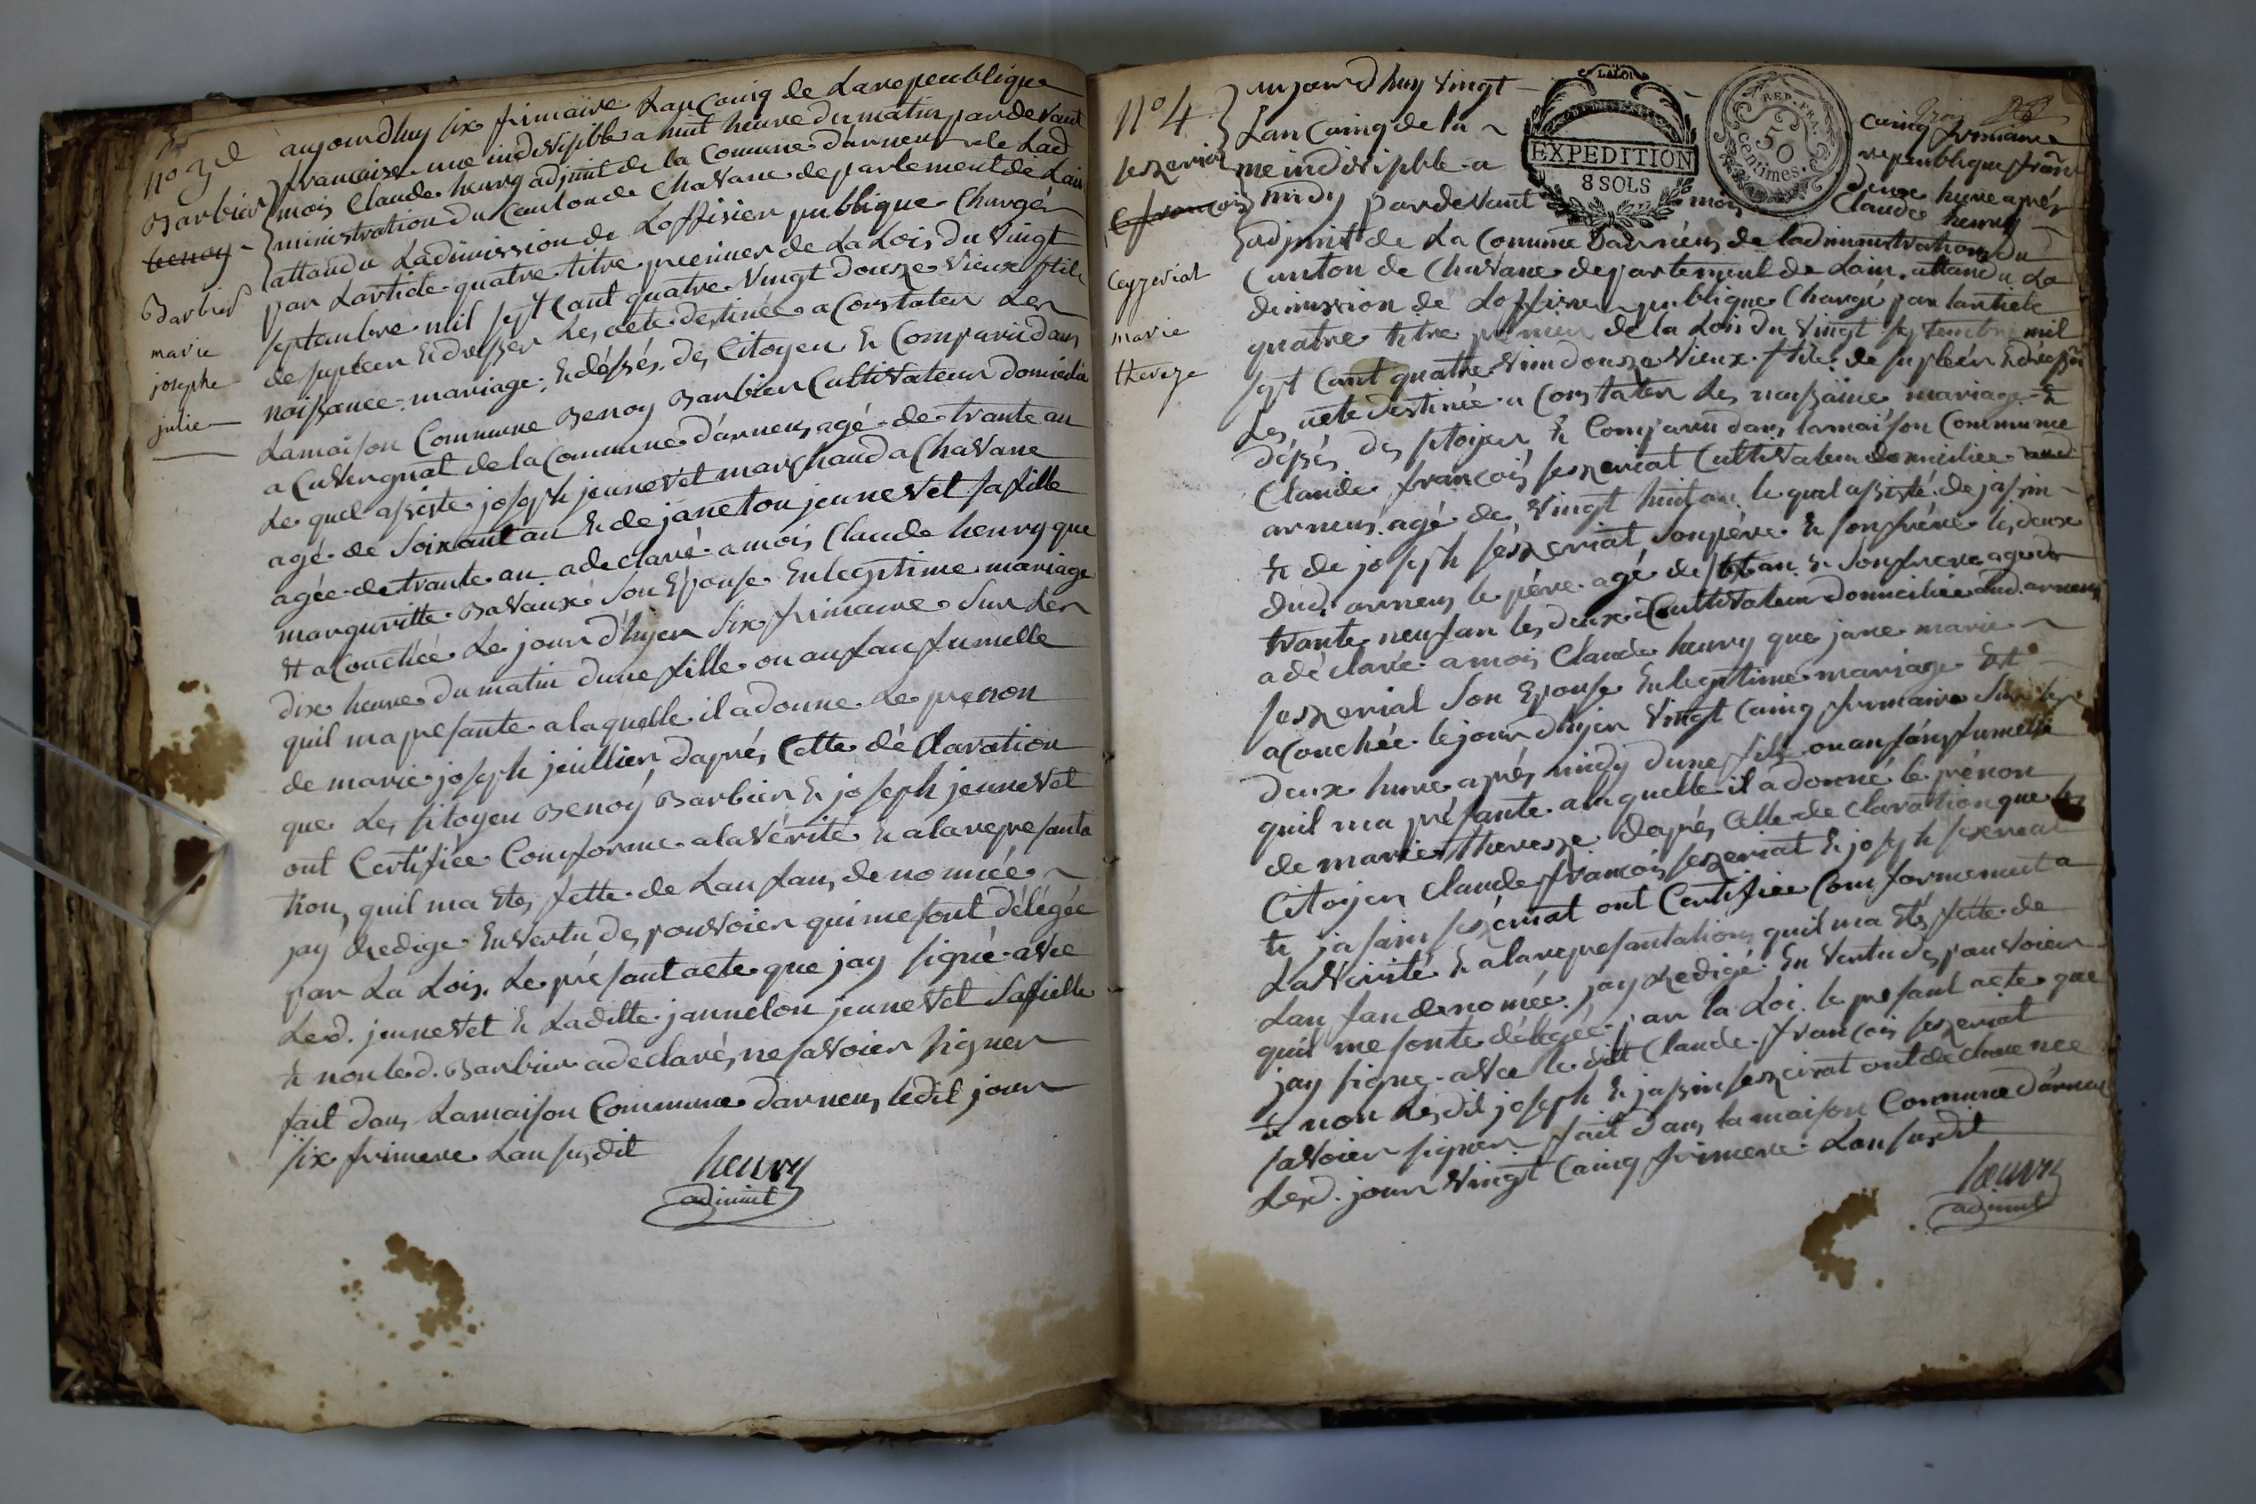 no 3e
Barbier
benoy
Barbier
marie
josephe
julie
aujourdhuy six frimaire Lan Cainq de La repeublique
francaise une indivisible a huit heure du matin par devant
mois Claude henry adjoint de la Comune darneus de Lad
ministration du Canton de Chavane departement de Lain
attandu Ladimission de Loffisier publique Chargér
par Larticle quatre titre premier de La Lois du vingt
septanbre mil sept Cant quatre vingt douze vieux stile
de supleer & dresser Les acte destinée a Constater Les
naissance. mariage. & désés. des Citoyen & Comparu dans
Lamaison Commune Benoy Barbier Cultivateur domicilié
a Cuvergnat de la Commune darneus agé de trante an
Le quel assiste joseph jeunevet marchand a Chavane
agé de soixant an & de janeton jeunevet sa fille
agée de trante an a declaré a mois Claude henry que
marguritte Bavaux son Epouse En legitime mariage
Et acouchée Le jour d'hyer six frimaire sur Les
dix heure du matin dune fille ou anfan fumelle
quil ma presante a laquelle il a donne Le prenon
de marie joseph juillier daprés Cette déClaration
que Les sitoyen Benoy Barbier & joseph jeunevet
ont Certifiée Conforme a la vérité & a la represanta
tion, quil ma Etes fette de Lanfan, denomée
jay Redige En vertu des pouvoier qui me sont délégée
par La Lois. Le présant acte que jay signé avec
Led. jeunevet & Laditte janneton jeunevet sa fielle
& non led. Barbier a declaré, ne savoier signer
fait dans Lamaison Commune darneus ledit jour
six frimere Lan susdit
henry
adjoint
no 4
seszeriat
francois
Ceyzeriat
marie
thereze
LA LOI
EXPEDITION
8 SOLS
REP. FRA.
50
Centimes.
aujourdhuy vingt cainq frimaire
Lan Cainq de la republique fran
une indivisible a deux hure aprés
midy par devant mois Claude henry
adjoint de La Comune Darneus de ladministration du
Canton de Chavane departement de Lain. attandu La
dimission de Loffisier publique Chargé par lartiele
quatre titre premier de la Lois du vingt septembre mil
sept Cant quatre vin douze vieux stile de supleér & dresser
Les acte destinée a Constater Les naissaine mariage &
désés des sitoyen & Comparu dans lamaison Commune
Claude francois seszeriat Cultivateur domiciliée aud
arneus agé de vingt huit an le quel assisté de jassin
& de joseph seszeriat son pére & son frére les deux
dud. arneus le pére agé de an & son frere age de
trante neuf an les deux Cultivateur domiciliée aud arneus
a déclaré a mois Claude henry que jane marie
seszeriat son Epouse En legitime mariage Et
acouchée le jour dhyer vingt Cainq frimaire sur les
deux hure aprés midy dune fille ou anfan fumelle
quil ma présante a laquelle il a donné le prénon
de marie theresze daprés Cette declaration que les
Citoyen Claude francois seszeriat & joseph seszeriat
& jasain seszériat ont Certifiée Conformement a
La vérité & a la represantation, quil ma Etés fette de
Lanfan denomée. jay Redigé En vertu des pauvoier
quil me sonte délégée par la Loi. le presant acte que
jay signe avec le ditt Claude francois seszeriat
& non Lesdit joseph & jassin seszeirat ont declare nee
savoier signer fait dans la maison Commune darneus
Lesd. jour vingt Cainq frimere Lan susdit
henry
adjoint